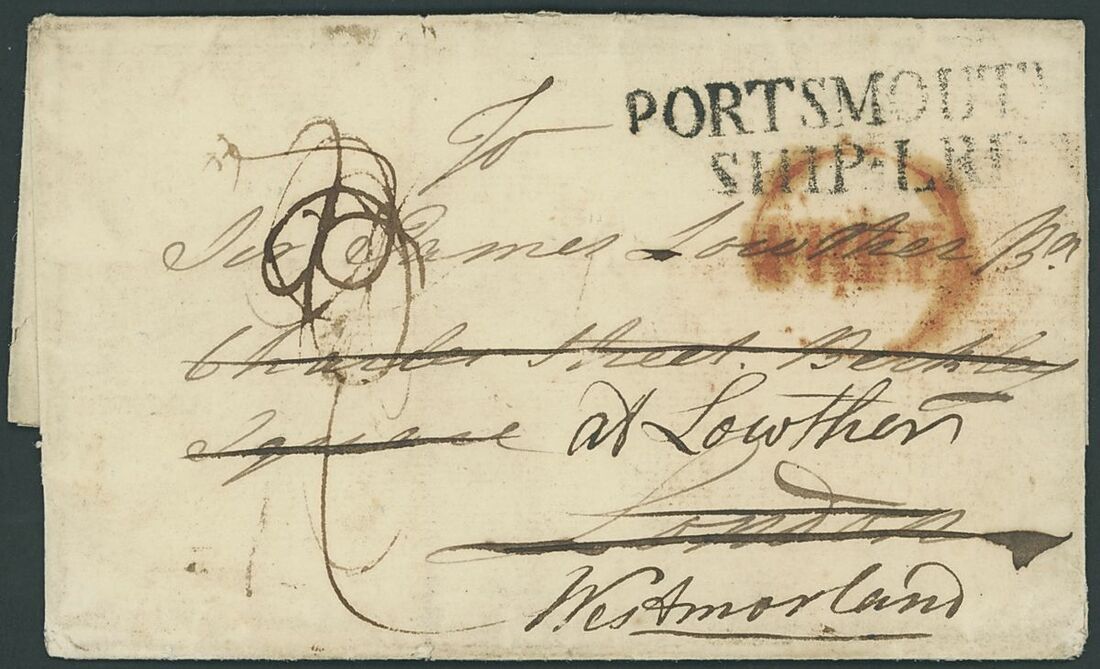 PORTSMOUTH
SHIP-LRE
To
Sir James Lowther Ba
Charles Street Berkley
Square at Lowther
London
Westmorland